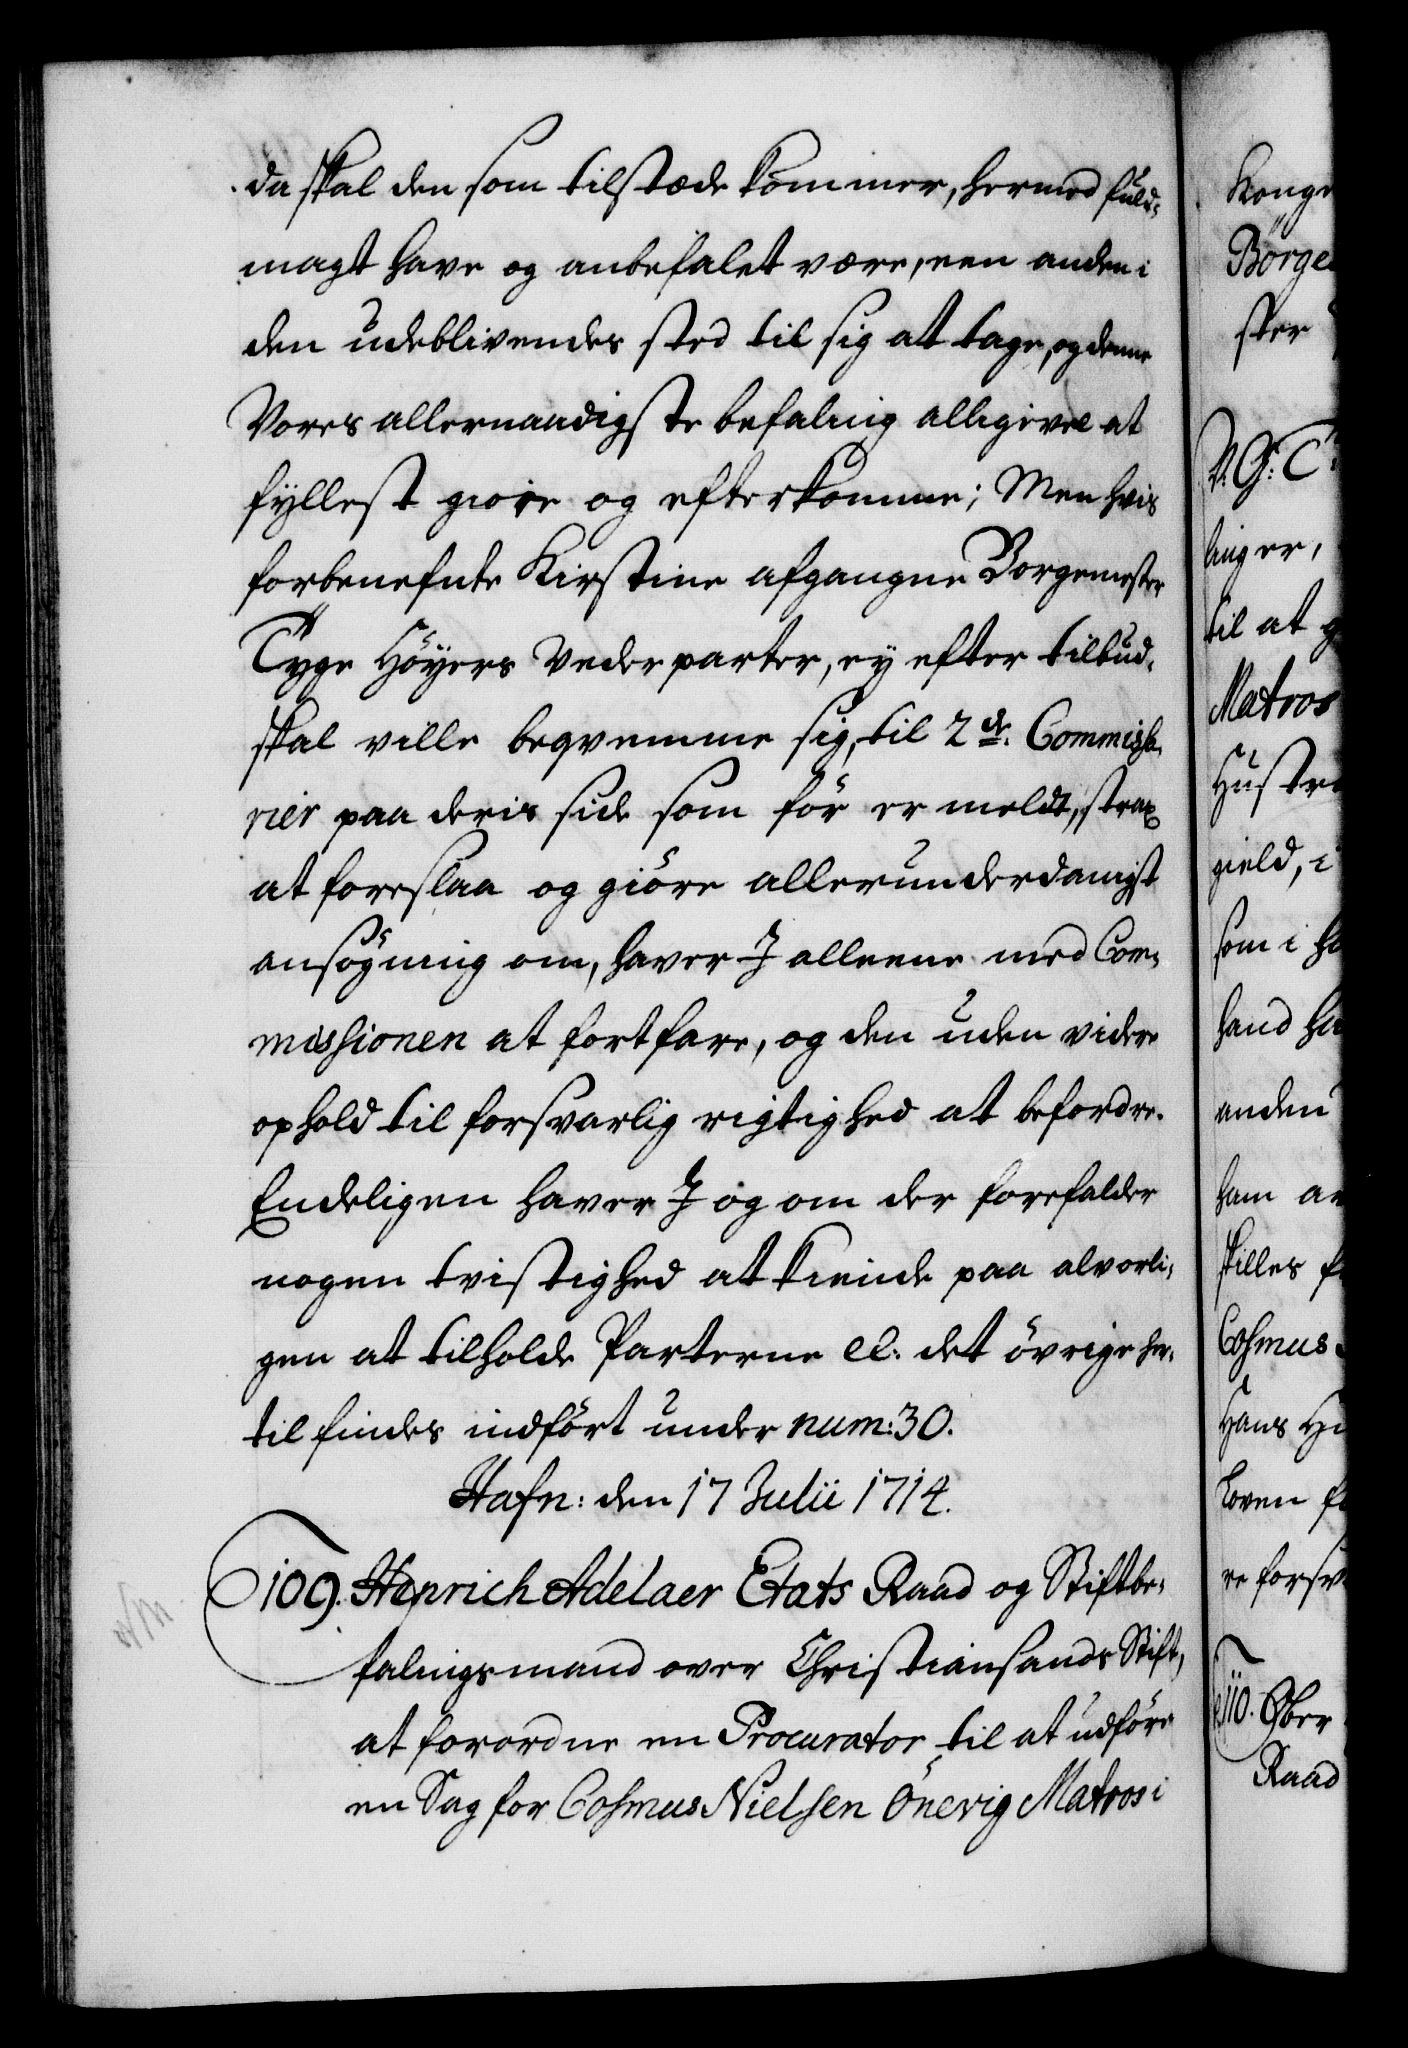 da skal den som tilstæde kommer, hermed fuld-
magt have og anbefalet være, een anden i
den udeblivendes sted til sig att tage, og denne
Vores allernaadigste befaling alligevel at
fyllest giøre og efterkomme; Men hvis
forbenefnte Kirstine afgangne Borgemester
Tyge Höyers Vederparter, ey efter tilbud,
skal ville beqvemme sig, til 2de. Commissa-
rier paa deris side som för er meldt, strax
at foreslaa og giöre allerunderdanigst
ansögning om, haver I alleene med Com-
missionen at fortfare, og den uden videre
ophold til forsvarlig rigtighed at befordre.
Endeligen haver I og om der forefalder
nogen tvistighed at kiende paa alvorli-
gen at tilholde Parterne el: det övrige her-
til findes indført under num: 30.
Hafn: den 17 Julii 1714.
109. Henrich Adelaer Etats Raad og Stiftbe-
falingsmand over Christiansands Stift,
at forordne en Procurator til at udföre
en Sag for Cosmus Nielsen Önevig Matros i
Konge
Börge
ster
V. G: T:
linger,
til at g
Matros
Hustr
gield, i
som i ha
hand ha
anden
ham an
stilles fo
Cosmus
Hans Hu
Loven fo
re forsv
110. Ober
Raad